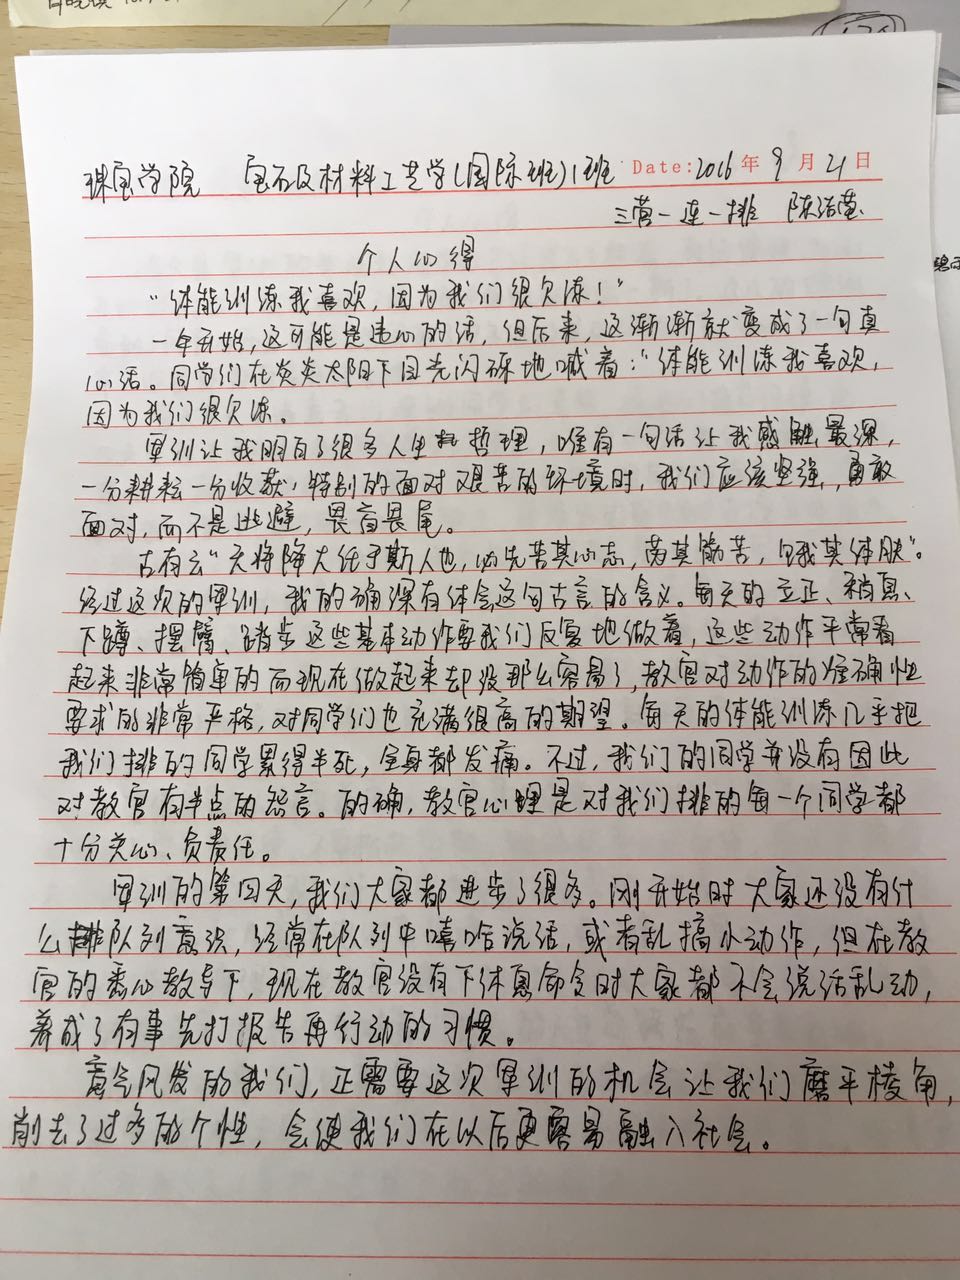 珠宝学院 宝石及材料工艺学(国际班)1班 Date:2016年9月21日
三营一连一排 陈洁莹
个人心得
“体能训练我喜欢,因为我们很欠练!”
一年开始,这可能是违心的话,但后来,这渐渐就变成了一句真
心话。同学们在炎炎太阳下目光闪砾地喊着:“体能训练我喜欢,
因为我们很欠练。
军训让我明白了很多人生哲理,唯有一句话让我感触最深,
一分耕耘一分收获,特别的面对艰苦的环境时,我们应该坚强,勇敢
面对,而不是逃避,畏首畏尾。
古有云“天将降大任于斯人也,必先苦其心志,劳其筋苦,饿其体肤”。
经过这次的军训,我的确深有体会这句古言的含义。每天的立正、稍息、
下蹲、摆臂、踏步这些基本动作要我们反复地做着,这些动作平常看
起来非常简单的而现在做起来却没那么容易了,教官对动作的准确性
要求的非常严格,对同学们也充满很高的期望。每天的体能训练几乎把
我们排的同学累得半死,全身都发痛。不过,我们的同学并没有因此
对教官有半点的怨言。的确,教官心理是对我们排的每一个同学都
十分关心、负责任。
军训的第四天,我们大家都进步了很多。刚开始时大家还没有什
么排队列意识,经常在队列中嘻哈说话,或者乱搞小动作,但在教
官的悉心教导下,现在教官没有下休息命令时大家都不会说话乱动,
养成了有事先打报告再行动的习惯。
意气风发的我们,正需要这次军训的机会让我们磨平棱角,
削去了过多的个性,会使我们在以后更容易融入社会。